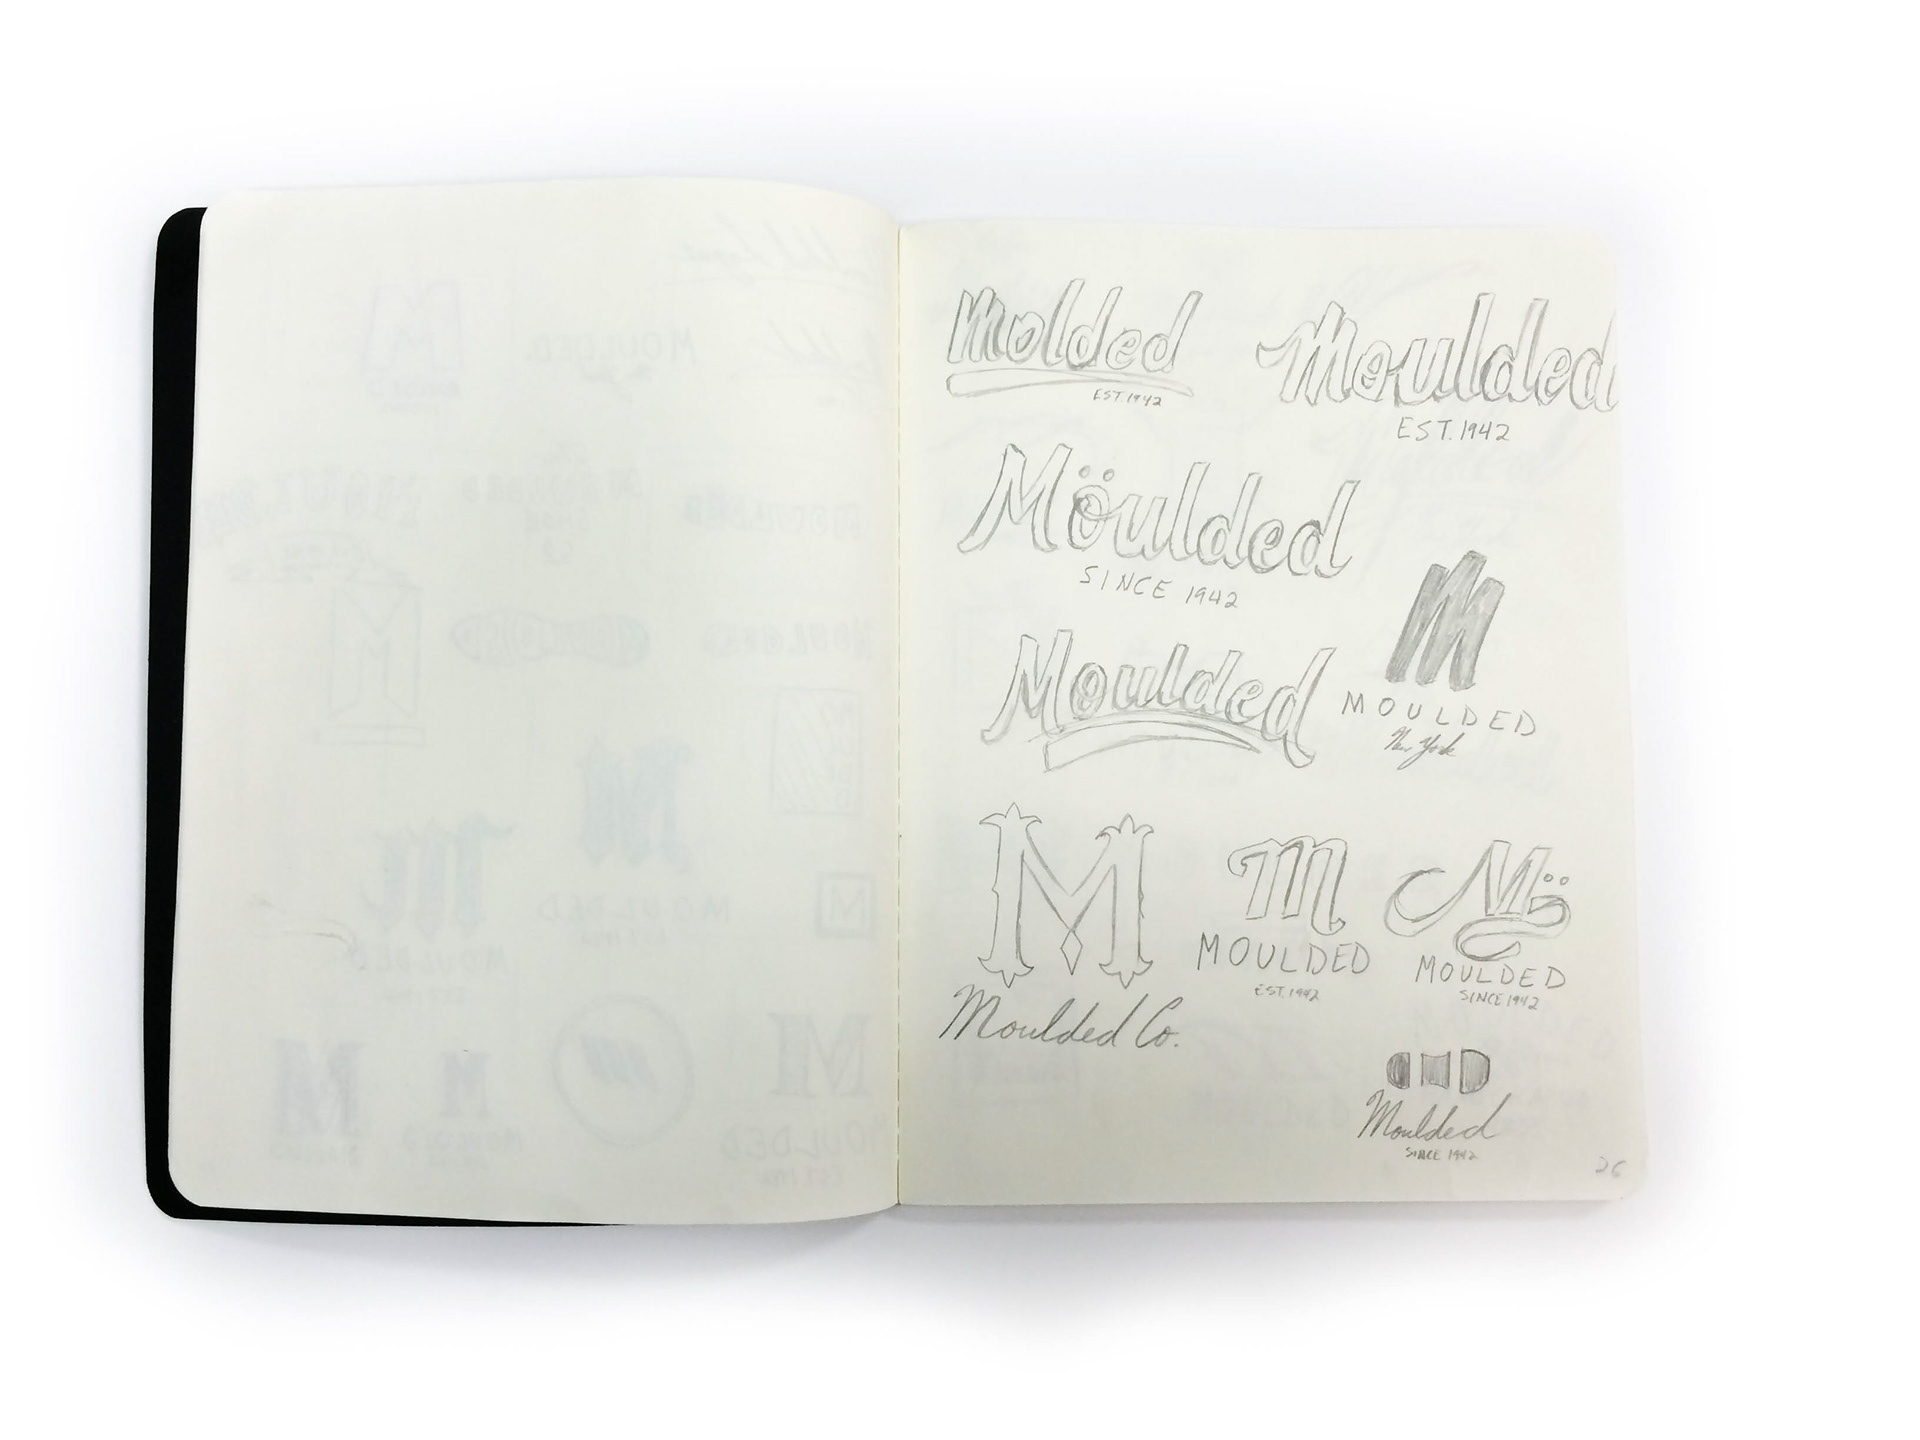 Molded
EST. 1942
Moulded
EST. 1942
Möulded
SINCE 1942
M
MOULDED
New York
Moulded
M
Moulded Co.
m
MOULDED
EST. 1942
Mö
MOULDED
SINCE 1942
Moulded
SINCE 1942
26